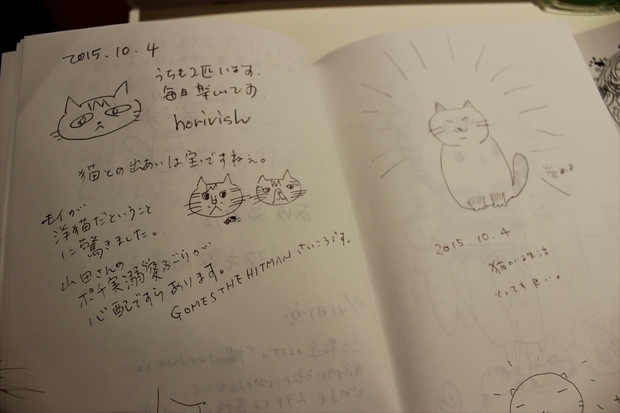 2015.10.4
うちも2匹います。
毎日楽しいです
horivish
猫との出あいは宝ですねぇ。
モイが
洋猫だということ
に驚きました。
山田さんの
ポチ実溺愛ぶりが
心配ですらあります。
GOMES THE HITMAN さいこうです。
2015.10.4
猫のいる生活
とっても良い。